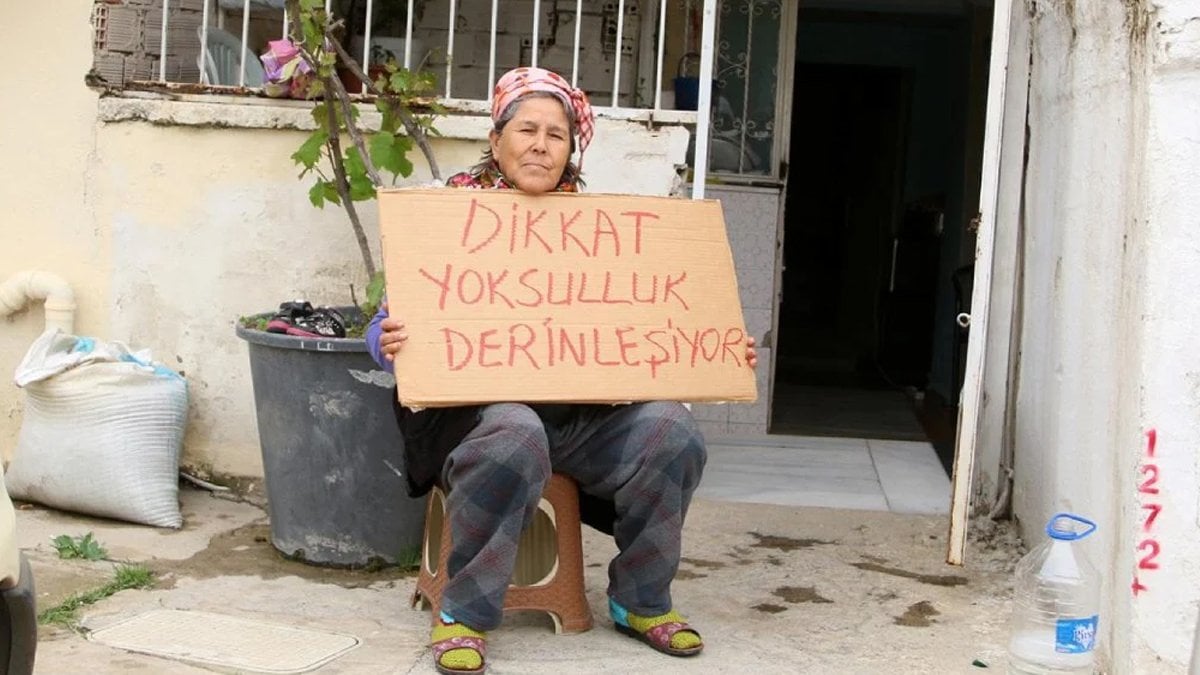 DİKKAT
YOKSULLUK
DERİNLEŞİYOR
12272